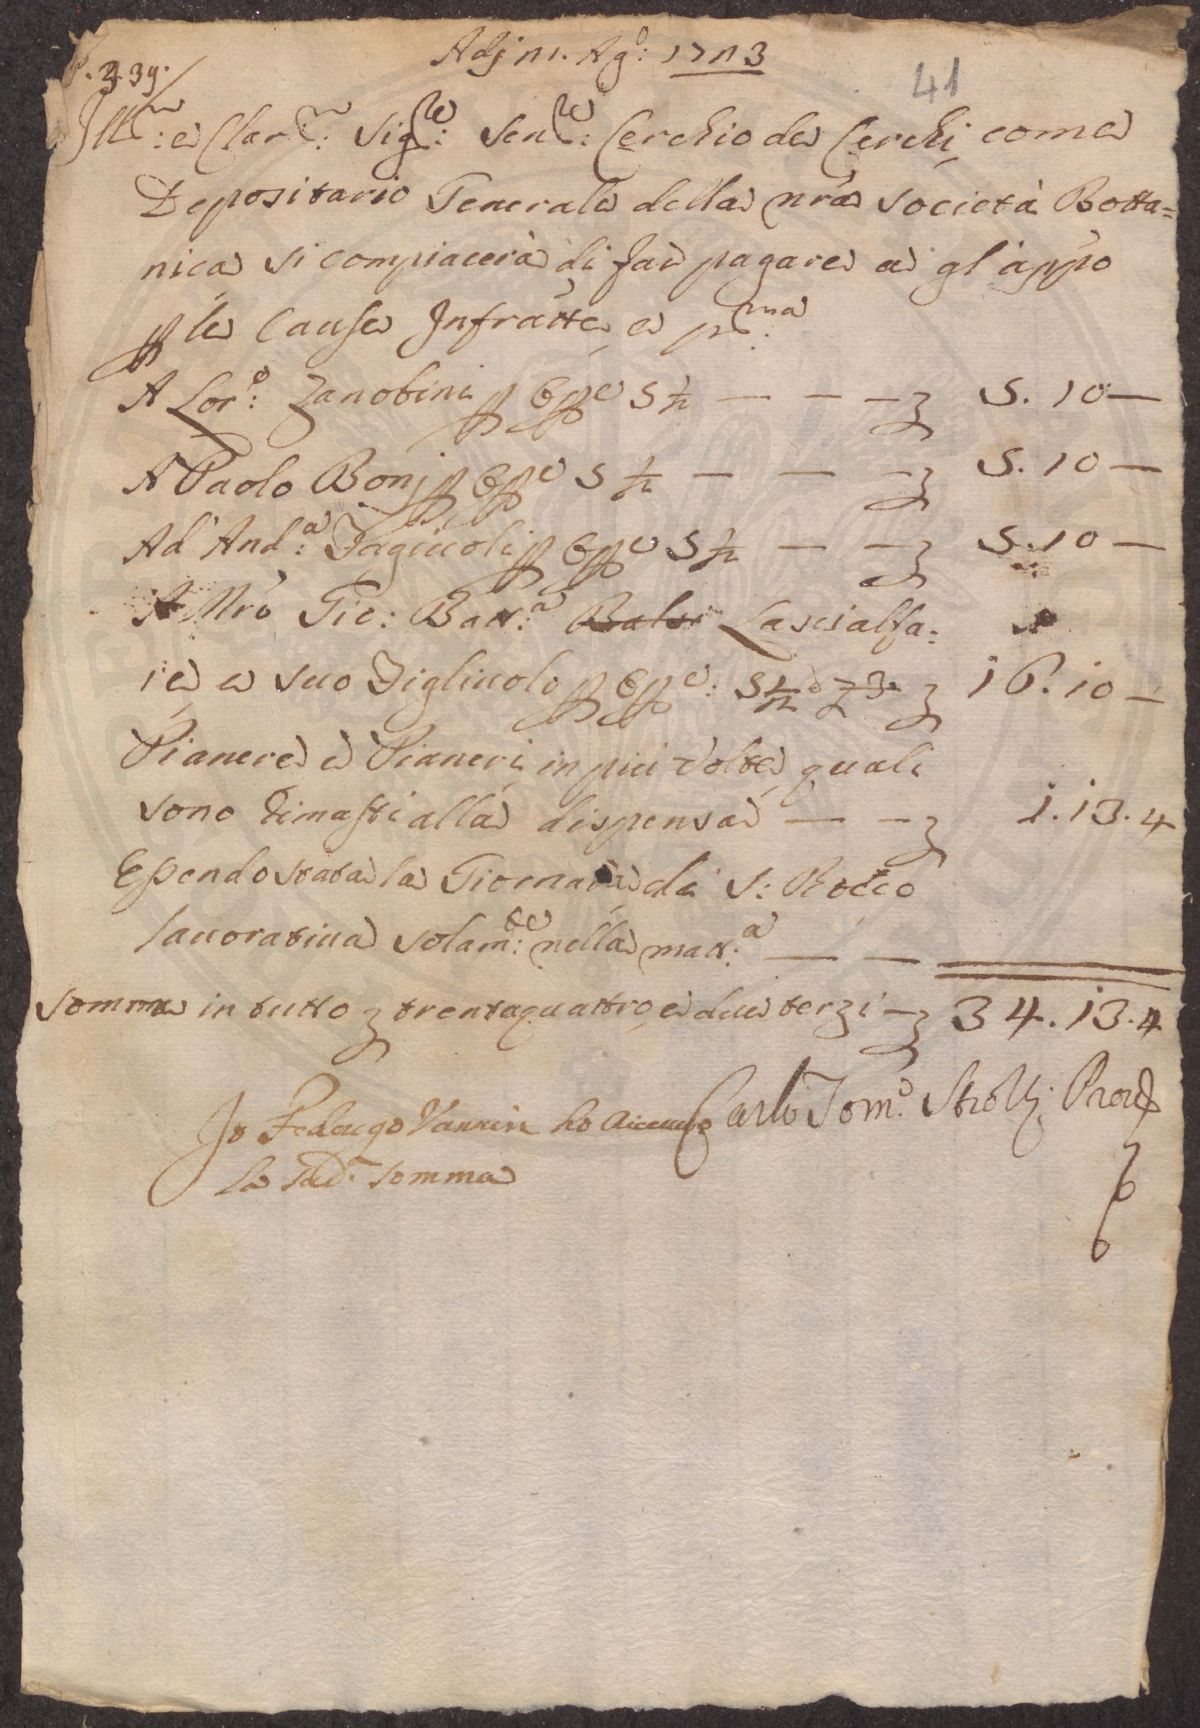 Adj 21. Ag:o 1723
41
P. 2.39.
Ill:mo e Clar:mo Sig:re Sen:re Cerchio de Cerchi come
Depositario Generale della nra Società Botta=
nica si compiacerà di far pagare a gl'appo
p le Cause Infratte, e p:ma
A Lor:o Zanobini p Opre 5 1/2 — — — 5. 10 —
A Paolo Bonj p Opre 5 1/2 — — — 5. 10 —
Ad And:a Fagiuoli p Opre 5 1/2 — — 5. 10 —
A Mro Gio: Batt:a Lascialfa=
re e suo Figliuolo p Opre: 5 1/2 16. 10 —
Pianere e Pianeri in più volte quali
sono rimasti alla dispensa — — 1. 13. 4
Essendo stata la Giornata di S: Rocco
lavorativa solam:te nella matt:a — —
Somma in tutto trentaquattro, e due terzi — 34. 13. 4
Carlo Tom:o Strozzi Prove
Io Federigo Vannini ho riceuto
la sud:a somma